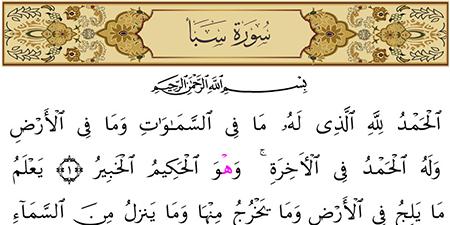 سُورَةُ سَبَأ
بِسْمِ ٱللَّهِ ٱلرَّحْمَٰنِ ٱلرَّحِيمِ
ٱلْحَمْدُ لِلَّهِ ٱلَّذِى لَهُۥ مَا فِى ٱلسَّمَٰوَٰتِ وَمَا فِى ٱلْأَرْضِ
وَلَهُ ٱلْحَمْدُ فِى ٱلْأَخِرَةِ ۚ وَهُوَ ٱلْحَكِيمُ ٱلْخَبِيرُ ﴿١﴾ يَعْلَمُ
مَا يَلِجُ فِى ٱلْأَرْضِ وَمَا يَخْرُجُ مِنْهَا وَمَا يَنزِلُ مِنَ ٱلسَّمَآءِ